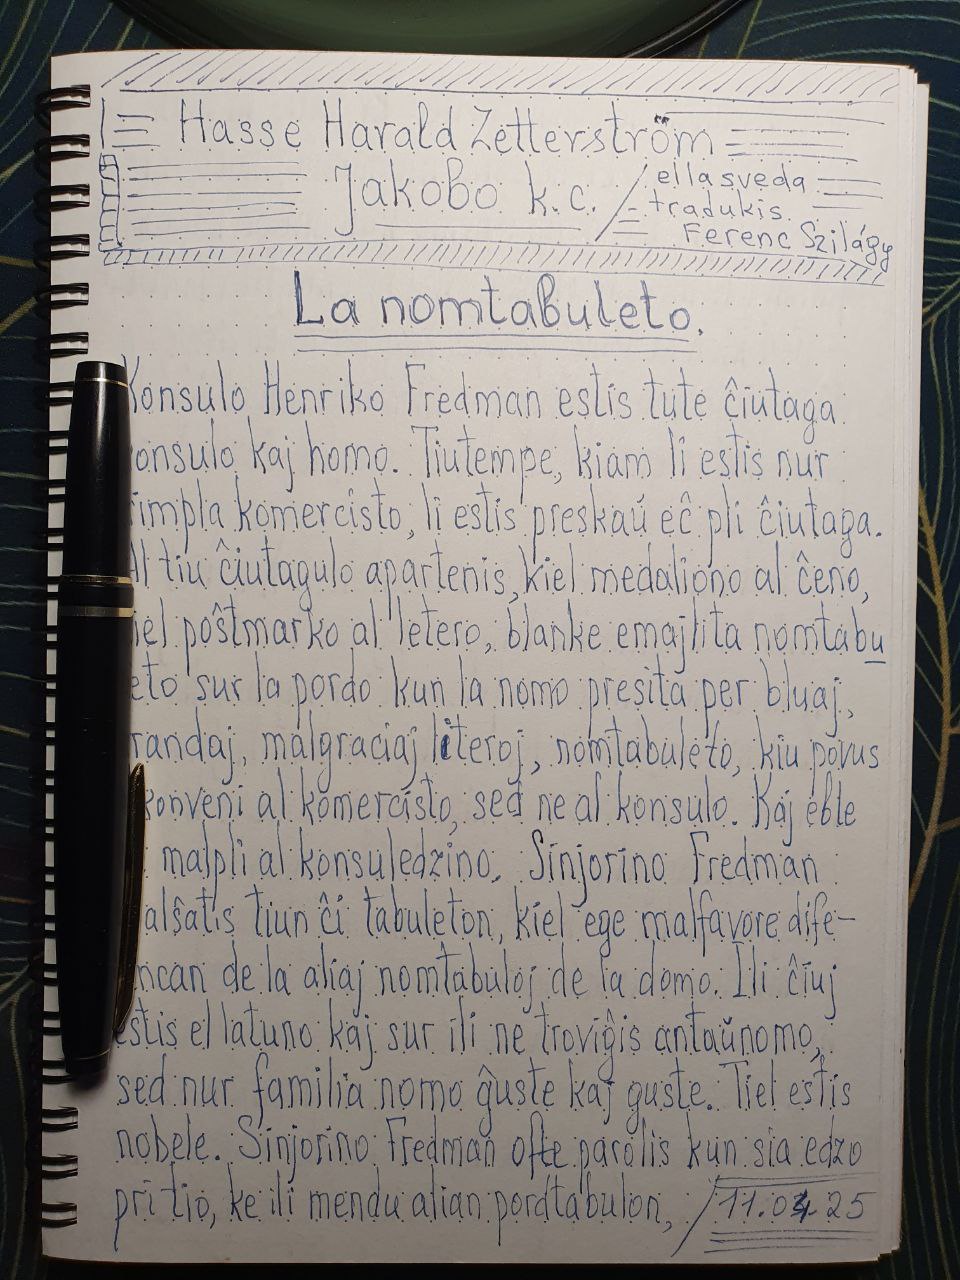 Hasse Harald Zetterström
Jakobo k.c.
el la sveda
tradukis
Ferenc Szilágy
La nomtabuleto.
Konsulo Henriko Fredman estis tute ĉiutaga
onsulo kaj homo. Tiutempe, kiam li estis nur
simpla komercisto, li estis preskaŭ eĉ pli ĉiutaga.
Al tiu ĉiutagulo apartenis, kiel medaliono al ĉeno,
iel poŝtmarko al letero, blanke emajlita nomtabu
eto sur la pordo kun la nomo presita per bluaj,
randaj, malgraciaj literoj, nomtabuleto, kiu povus
konveni al komercisto, sed ne al konsulo. Kaj eble
malpli al konsuledzino. Sinjorino Fredman
alŝatis tiun ĉi tabuleton, kiel ege malfavore dife-
ncan de la aliaj nomtabuloj de la domo. Ili ĉiuj
estis el latuno kaj sur ili ne troviĝis antaŭnomo,
sed nur familia nomo ĝuste kaj guste. Tiel estis
nobele. Sinjorino Fredman ofte parolis kun sia edzo
pri tio, ke ili mendu alian pordtabulon,
11.04.25